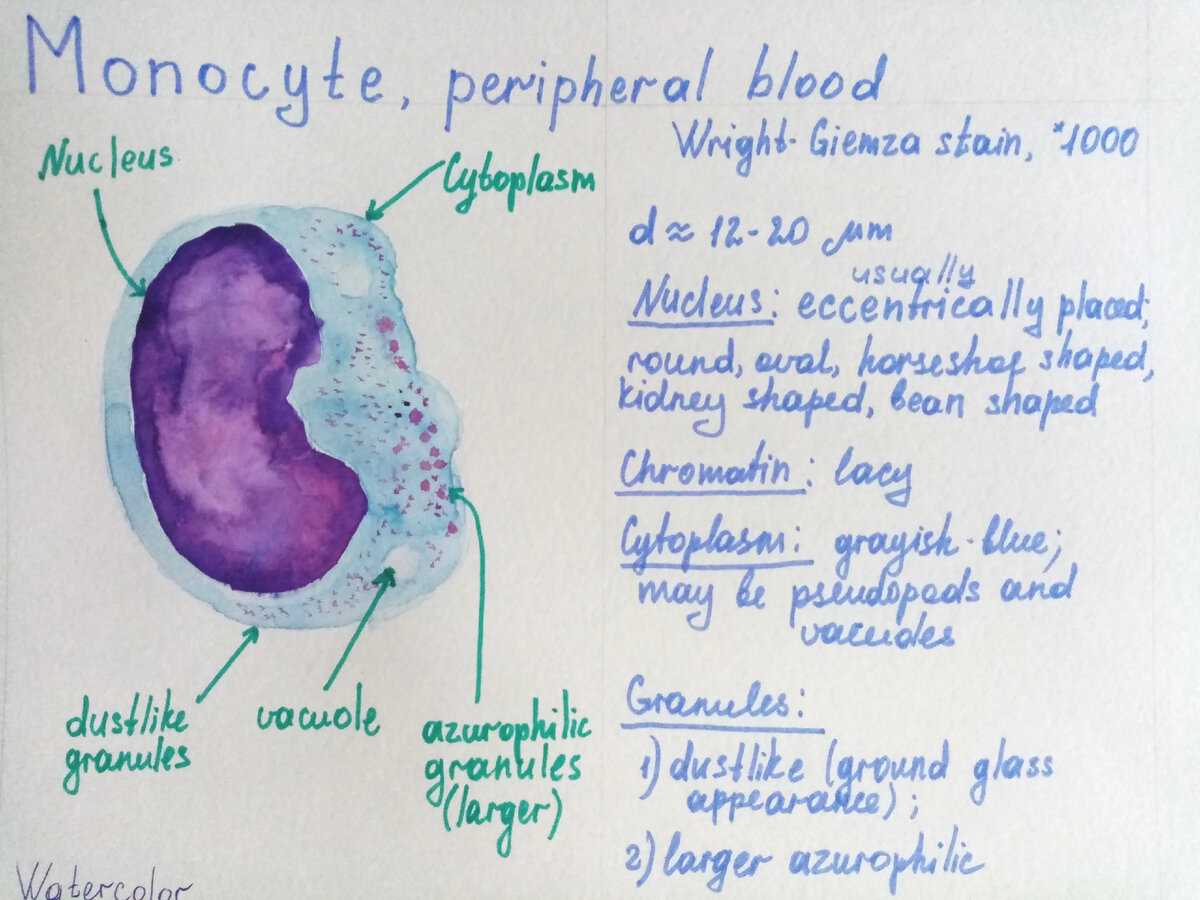 Monocyte, peripheral blood
Wright-Giemza stain, *1000
Nucleus
Cytoplasm
dustlike
granules
vacuole
azurophilic
granules
(larger)
d ≈ 12-20 μm
usually
Nucleus: eccentrically placed;
round, oval, horseshoe shaped,
kidney shaped, bean shaped
Chromatin: lacy
Cytoplasm: grayish-blue;
may be pseudopods and
vacuoles
Granules:
1) dustlike (ground glass
appearance);
2) larger azurophilic
Watercolor